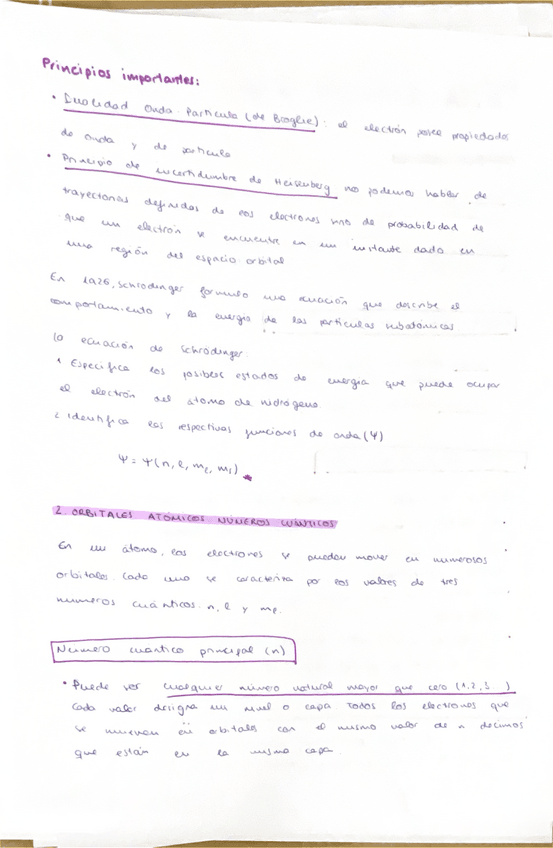 Principios importantes:
• Dualidad Onda Partícula (de Broglie): el electrón posee propiedades
de onda y de partícula
• Principio de incertidumbre de Heisenberg no podemos hablar de
trayectorias definidas de los electrones sino de probabilidad de
que un electrón se encuentre en un instante dado en
una región del espacio orbital
En 1926, Schrödinger formulo una ecuación que describe el
comportamiento y la energía de las partículas subatómicas
la ecuación de Schrödinger.
1 Especifica los posibles estados de energía que puede ocupar
el electrón del átomo de hidrógeno.
2 Identifica las respectivas funciones de onda (Ψ)
Ψ = Ψ(n, l, ml, ms)
2. ORBITALES ATÓMICOS NÚMEROS CUÁNTICOS
En un átomo, los electrones se pueden mover en numerosos
orbitales. Cada uno se caracteriza por los valores de tres
números cuánticos. n, l y ml.
Número cuántico principal (n)
• Puede ser cualquier número natural mayor que cero (1,2,3...)
Cada valor designa un nivel o capa Todos los electrones que
se mueven en orbitales con el mismo valor de n decimos
que están en la misma capa.